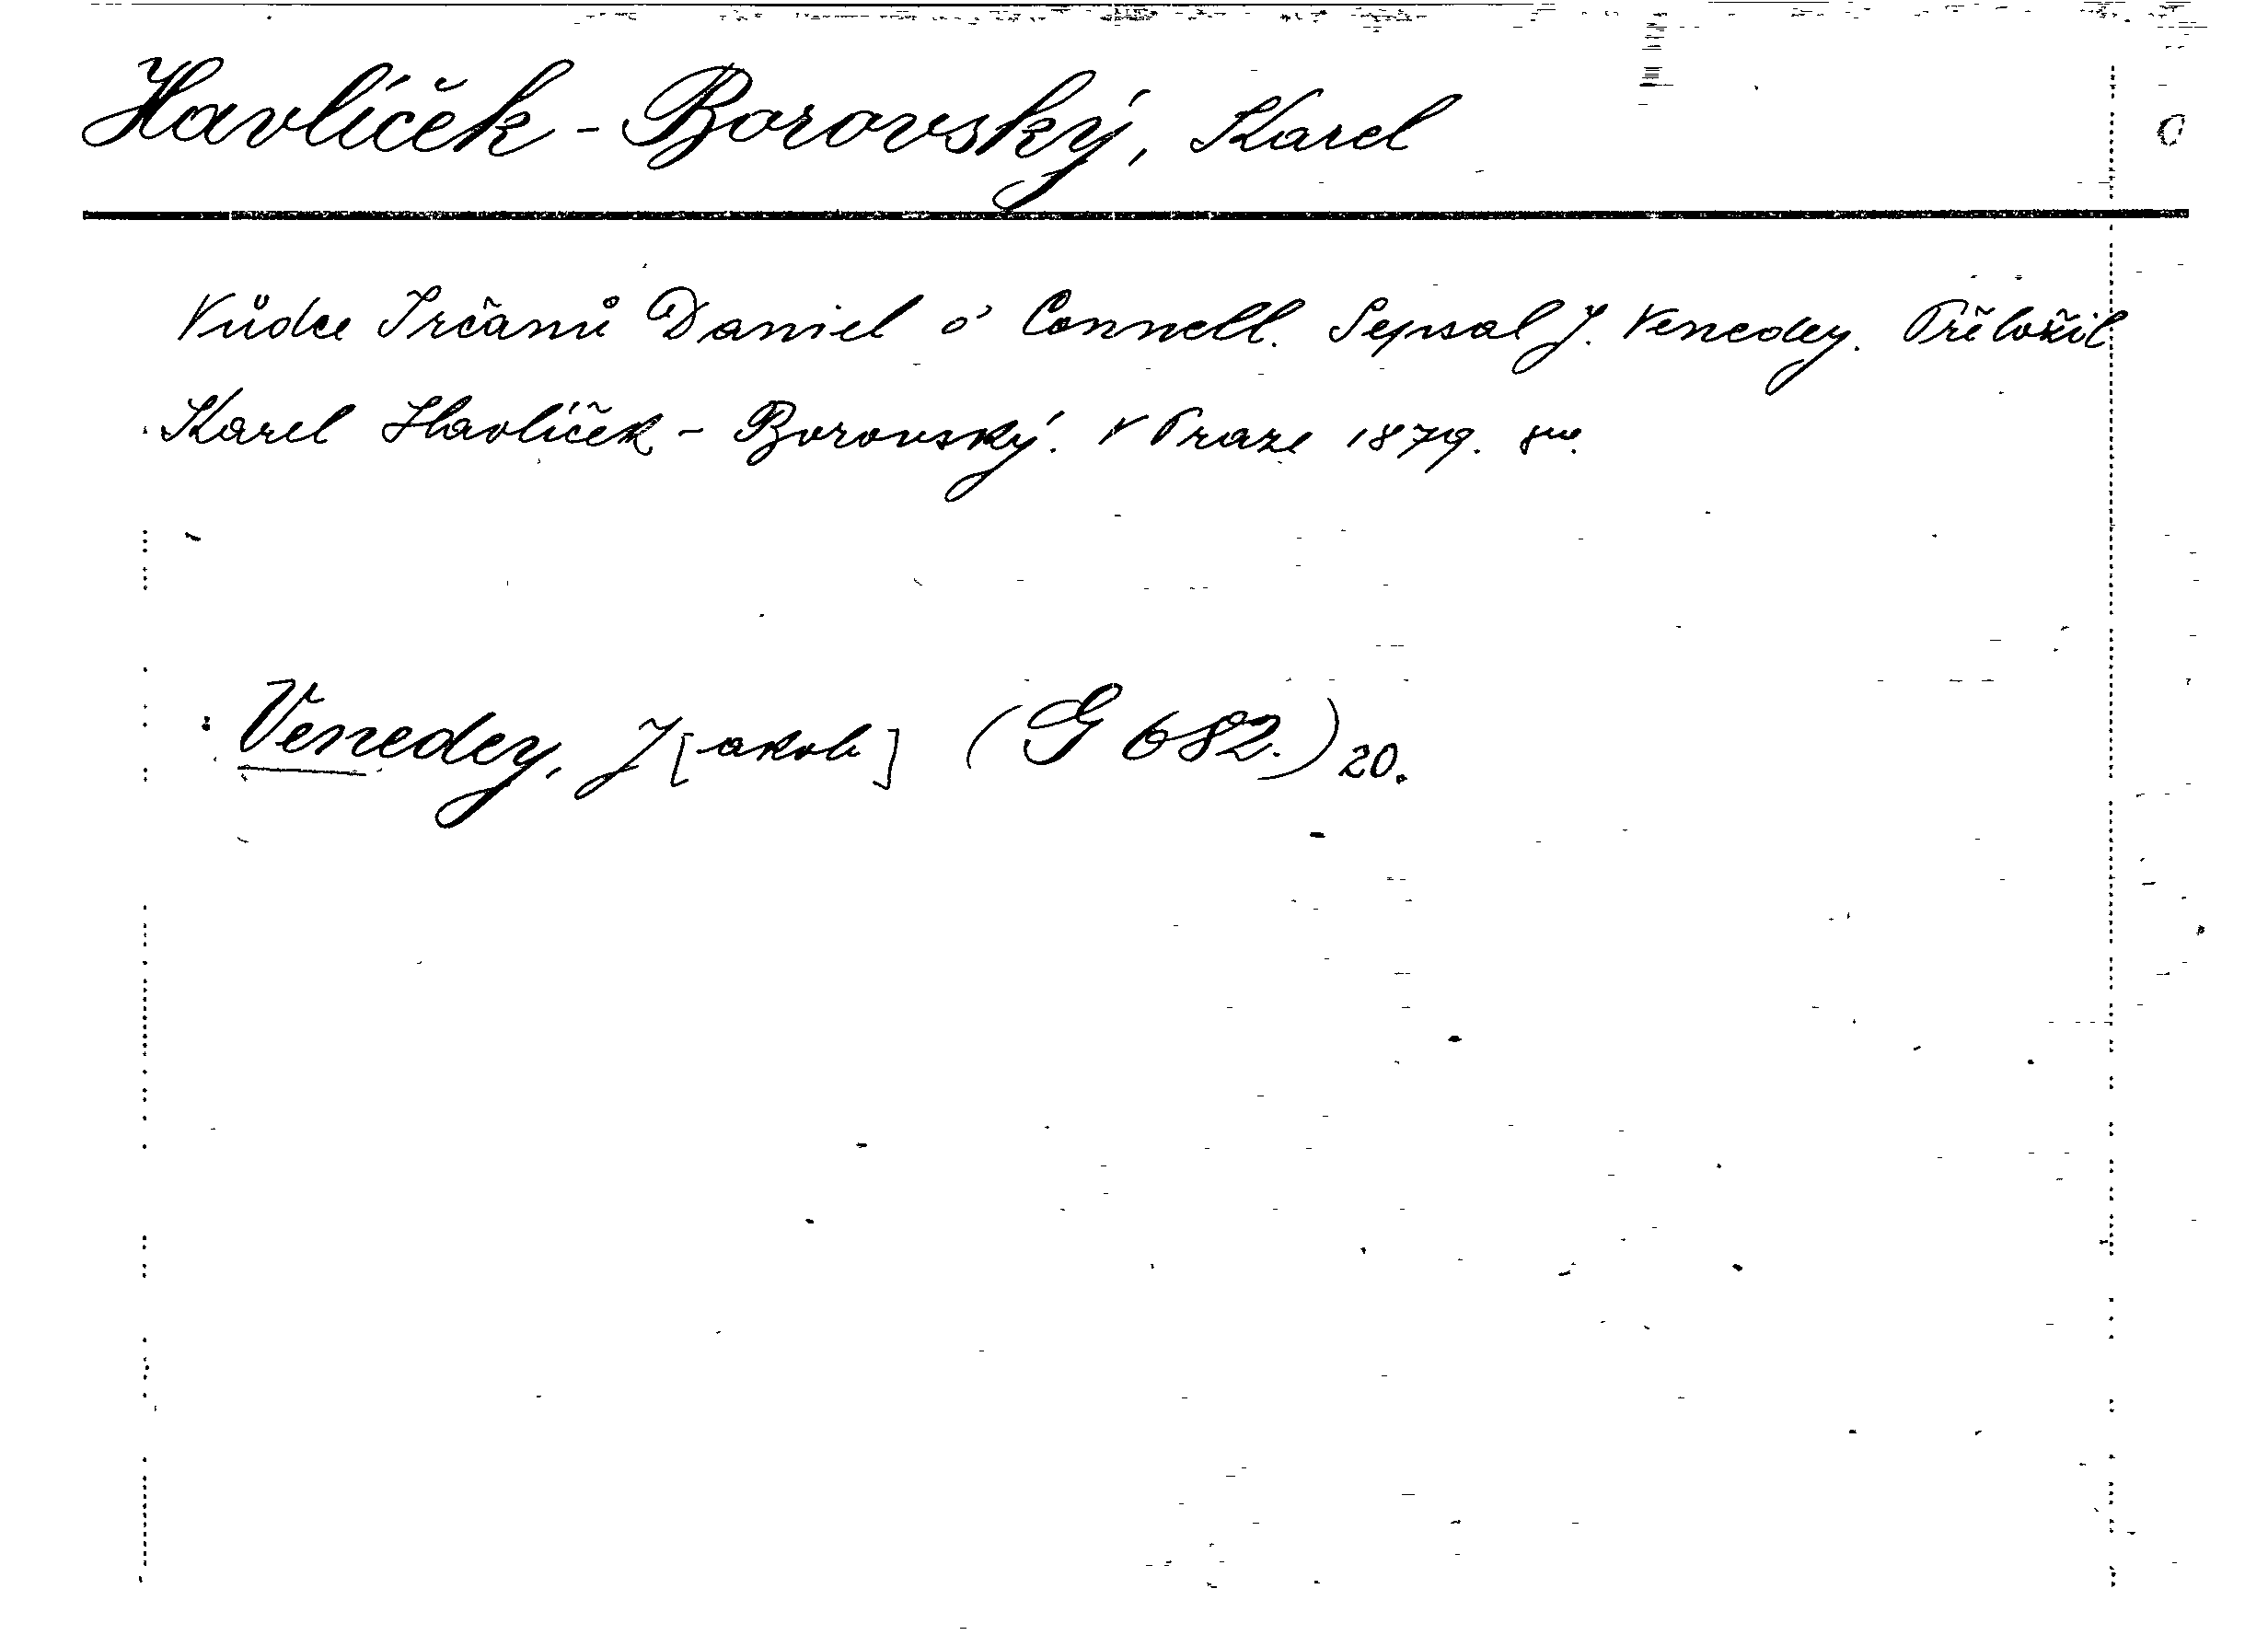 Havlíček-Borovský, Karel
Vůdce Irčanů Daniel o' Connell. Sepsal J. Venedey. Přeložil
Karel Havlíček-Borovský. V Praze 1879. 8vo.
Venedey, J[akob] (G 682.) 20.